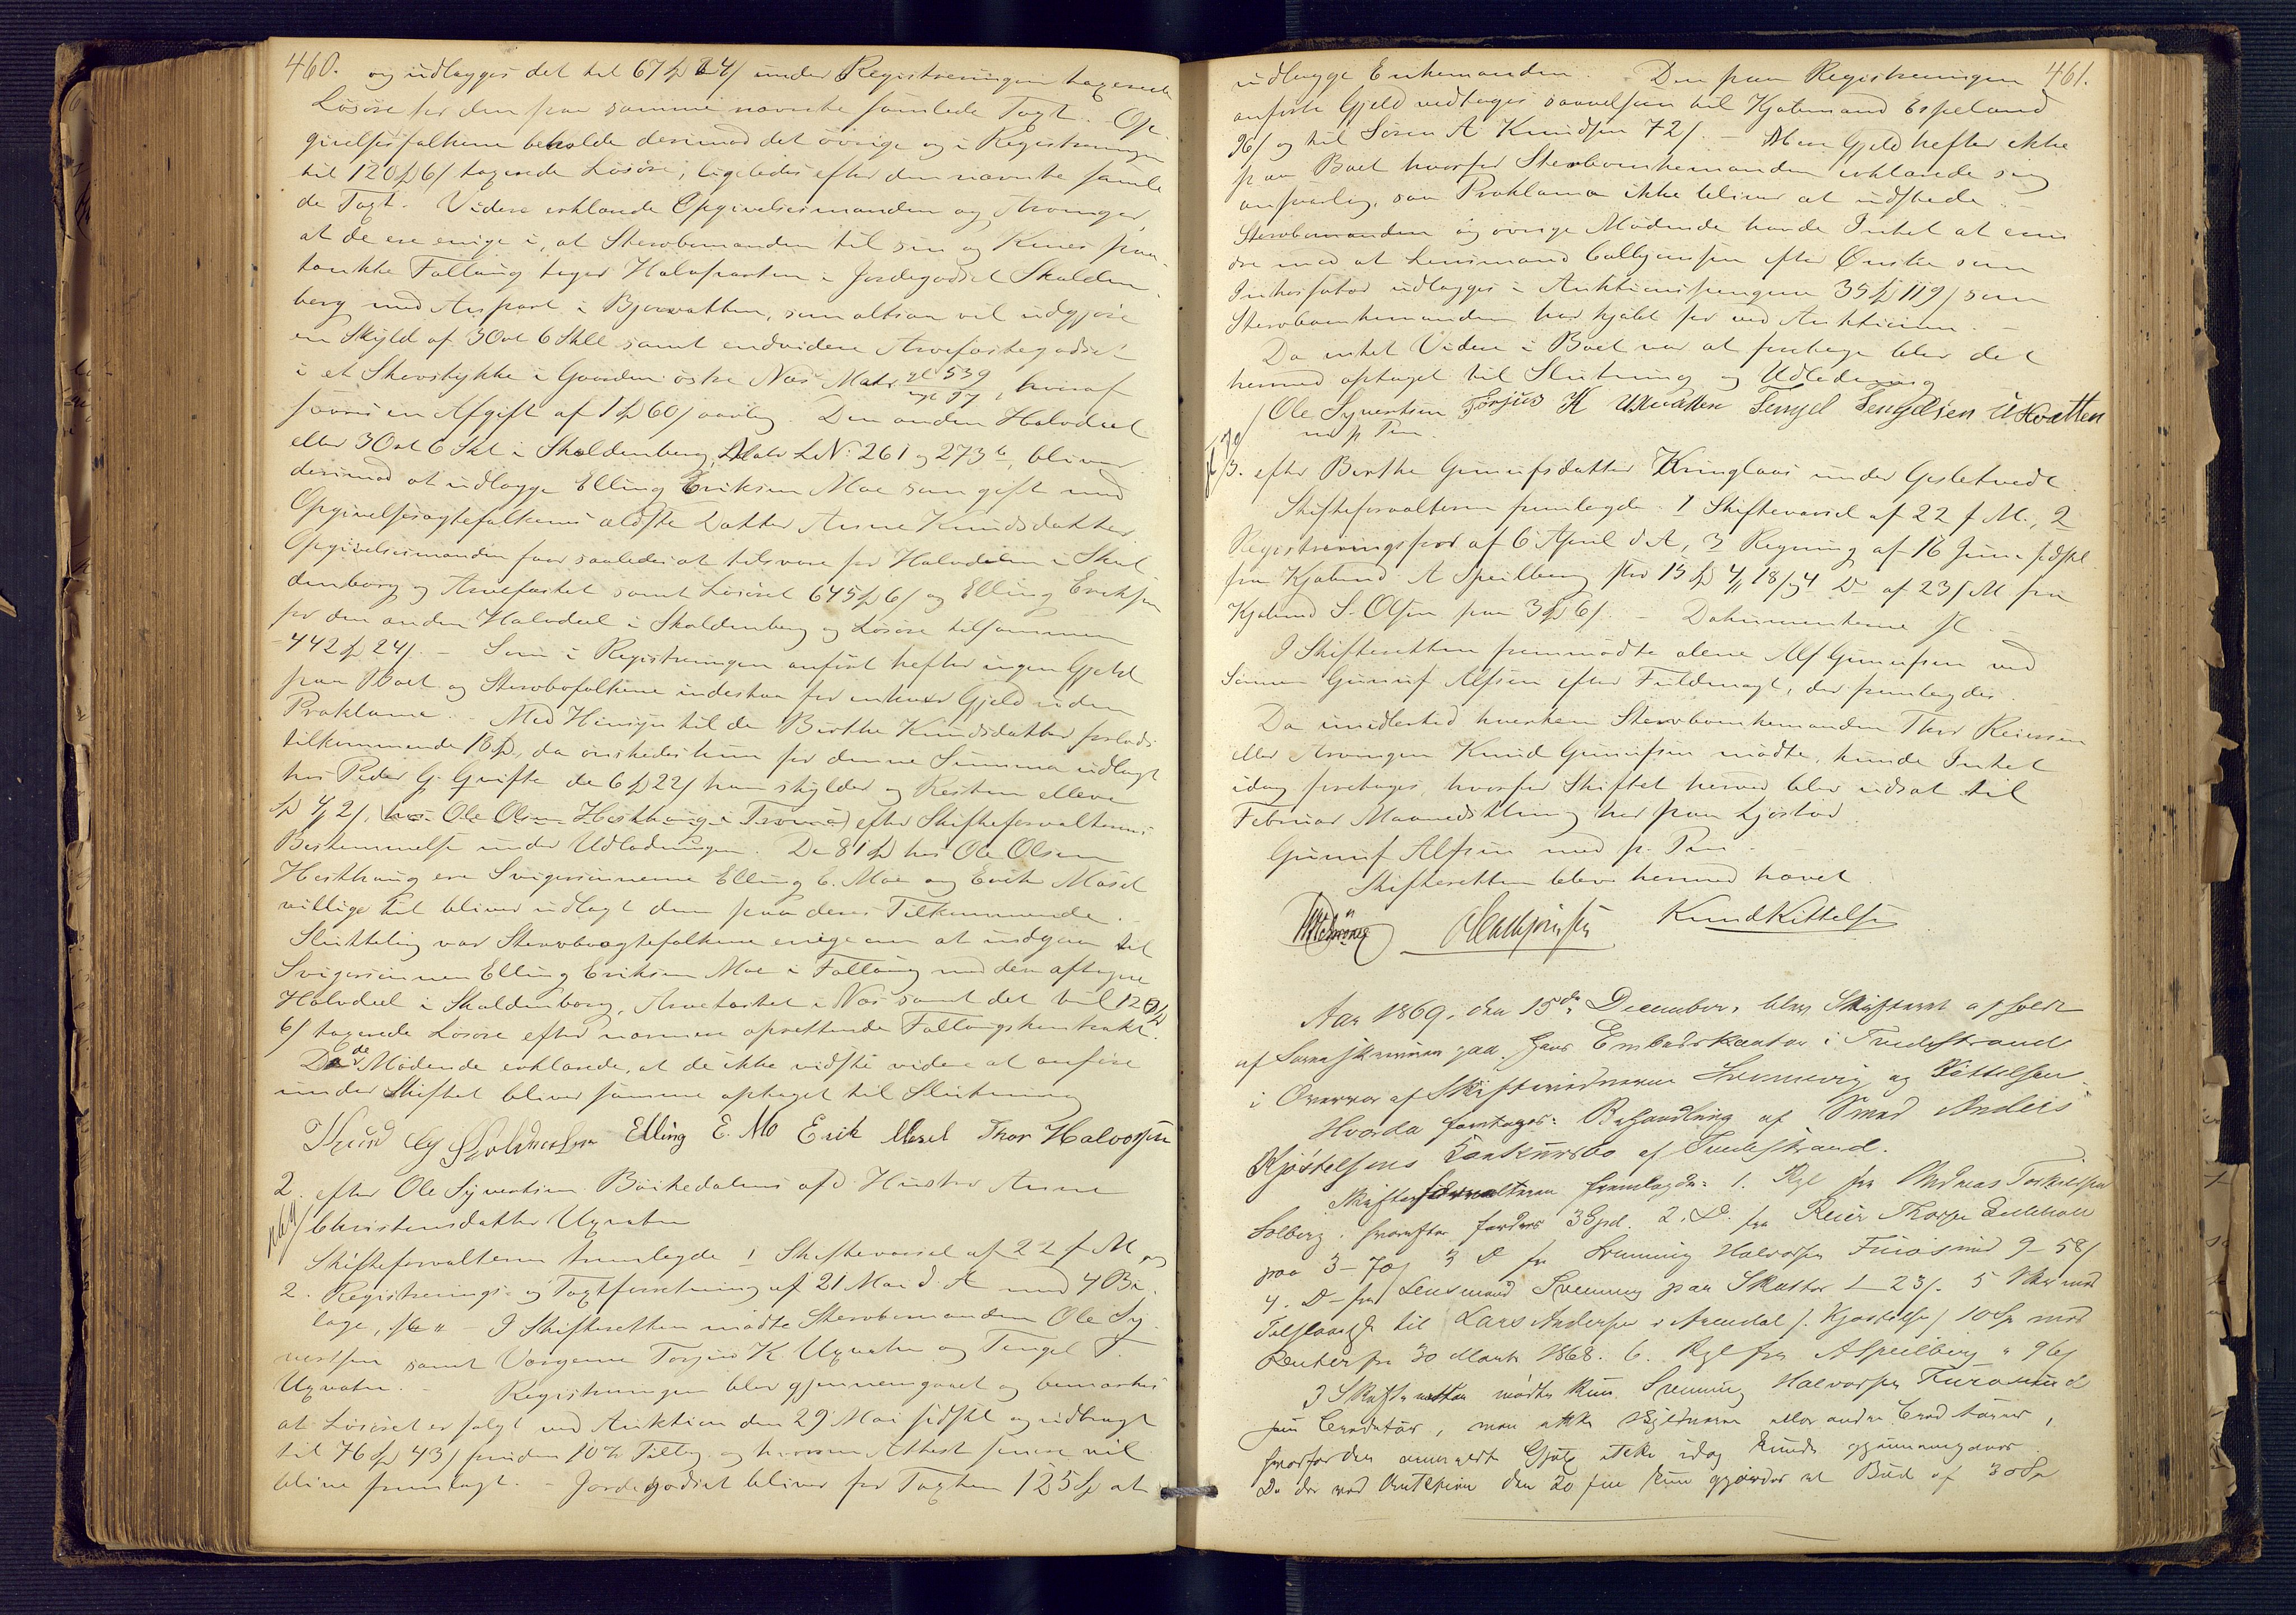 460.
og udlægges det til 67 Sp 24 s under Registreringen taxerede
Lösöre for den paa samme nævnte samlede Taxt. Op-
givelsesfolkene beholde derimod det övrige og i Registreringen
til 120 Sp 6 s taxerede Lösöre, ligeledes efter den nævnte samle
de Taxt. Videre erklærede Opgivelsesmanden og Arvinger,
at de ere enige i, at Stervbomanden til sin og Kones paa-
tænkte Follaug tager Halvparten i Jordegodset Skolden-
berg med Anpart i Bjorvatten, som altsaa vil udgjöre
en Skyld af 3 Ort 6 Skll samt endvidere Arvefæstegodset
i et Skovstykke i Gaarden östre Næs Matr gl 539, hvoraf
svares en Afgift af 1 Sp 60 s aarlig. Den anden Halvdeel
eller 3 Ort 6 Skl i Skoldenberg, Matr L No 261 og 273 b, bliver
derimod at udlægge Elling Eriksen Moe som gift med
Opgivelsesægtefolkenes ældste Datter Anne Knudsdatter.
Opgivelsesmanden faar saaledes at tilsvare for Halvdelen i Skol
denberg og Arvefæstet samt Lösöret 645 Sp 6 s og Elling Eriksen
for den anden Halvdeel i Skoldenberg og Lösöre tilsammen
442 Sp 24 s. – Som i Registreringen anfört hefter ingen Gjeld
paa Boet og Stervbofolkene indestaa for enhver Gjeld uden
Proklama. – Med Hensyn til de Birthe Knudsdatter forlods
tilkommende 18 Sp, da önskedes hun for denne Summa udlagt
hos Peder G. Grifte de 6 Sp 22 s han skylder og Resten elleve
Sp 4 2 s, hos Ole Olsen Hesthaug i Tromö efter Skifteforvalterens
Bestemmelse under Udlodningen. De 81 Sp hos Ole Olsen
Hesthaug ere Svigersönnerne Elling E. Moe og Erik Mosel
villige til bliver udlagt dem paa deres Tilkommende.
Slutteligt var Stervboægtefolkene enige om at indgaa til
Svigersönnen Elling Eriksen Moe i Follaug med den aftagne
Halvdeel i Skoldenberg, Arvefæstet i Næs samt det til 120 Sp
6 s taxerede Lösöre efter nærmere oprettende Follaugskontrakt.
Da de Mödende erklærede, at de ikke vidste videre at anföre
under Skiftet bliver samme optaget til Slutning
Knud Elling E. Mo Erik Mosel Thor Halvorsen
2. efter Ole Syvertsen Böikedalens afd Hustro Anne
Christensdatter Uxvatn
Skifteforvalteren fremlagde 1 Skiftevarsel af 22 f M og
2. Registrerings- og Taxtforretning af 21 Mai d. A med 4 Bi
lage, – I Skifteretten mödte Stervbomanden Ole Sy
vertsen samt Værgerne Torjus K. Uxvatn og Tengel T.
Uxvatn. – Registreringen blev gjennemgaaet og bemærkes
at Lösöret er solgt ved Auktion den 29 Mai sidstl og udbragt
til 76 Sp 43 s foruden 10 % Tillæg og hvorom Attest senere vil
blive fremlagt. – Jordegodset bliver for Taxten 125 Sp at
461.
udlægge Enkemanden. Den paa Registreringen
anförte Gjeld vedtages saavelsom til Kjøbmand Espeland
96 s og til Sören A. Knudsen 72 s. – Mere Gjeld hefter ikke
paa Boet hvorfor Stervboenkemanden erklærede sig
ansvarlig, saa Proklama ikke bliver at udstede.
Stervbomanden og övrige Mödende havde Intet at erin
dre mod at Lensmand Callyrissen efter Önske som
Inkassator udlægges i Auktionspengene 35 Sp 119 s som
Stervboenkemanden har kjöbt for ved Auktionen. –
Da intet Videre i Boet var at foretage blev det
hermed optaget til Slutning og Udlodning
Ole Syvertsen Torjus K Uxvatten Tengel Tengelsen Uxvatten
m p Pen.
3. efter Birthe Gunufsdatter Kringlaas under Gisletvedt.
Skifteforvalteren fremlagde 1 Skiftevarsel af 22 f M., 2
Registreringsforr af 6 April d A, 3 Regning af 16 Juni sidstl
fra Kjøbmd A Speilberg stor 15 Sp 4 18 s og 4 Do af 23 s M fra
Kjøbmd S. Olsen paa 3 Sp 6 s. – Dokumenterne
I Skifteretten fremmödte alene Alf Gunufsen ved
Sönnen Gunuf Alfsen efter Fuldmagt, der fremlagdes.
Da imidlertid hverken Stervboenkemanden Thor Reiersen
eller Arvingen Knud Gunufsen mödte, kunde Intet
idag foretages, hvorfor Skiftet herved blev udsat til
Februar Maanedsthing her paa Lyöstad.
Gunuf Alfsen med p. Pen.
Skifteretten blev hermed hævet.
Knud Kittelsen
Aar 1869, den 15de December, blev Skifteret afholdt
af Sorenskriveren paa hans Embedskontor i Tvedestrand
i Overvær af Skiftevidnerne Svennevig og Kittelsen
Hvorda foretoges: Behandling af Smed Anders
Kjöstelsens Konkursbo af Tvedestrand.
Skifteforvalteren fremlagde: 1. Rgl fra Andreas Torkildsen
Solberg, hvorefter fordres 3 Spd. 2. D. fra Reier Thorsen
paa 3 – 70 s 3 D fr Svenning Halvorsen Furösund 9 – 58 s
4. D – fra Lensmand Svenning paa Skatter 1 – 23 s. 5
til Lars Andersen i Arendal 10 Sp med
Renter fra 30 Marts 1868. 6. Rgl fra A Speilberg " 96 s
I Skifteretten mödte kun Svenning Halvorsen Furösund
som Creditor, men ikke Skyldneren eller andre Creditorer,
hvorfor den anmeldte Gjæld ikke idag kunde gjennemgaaes.
Da der ved Auktion den 20 kun gjordes et Bud af 30 Sp